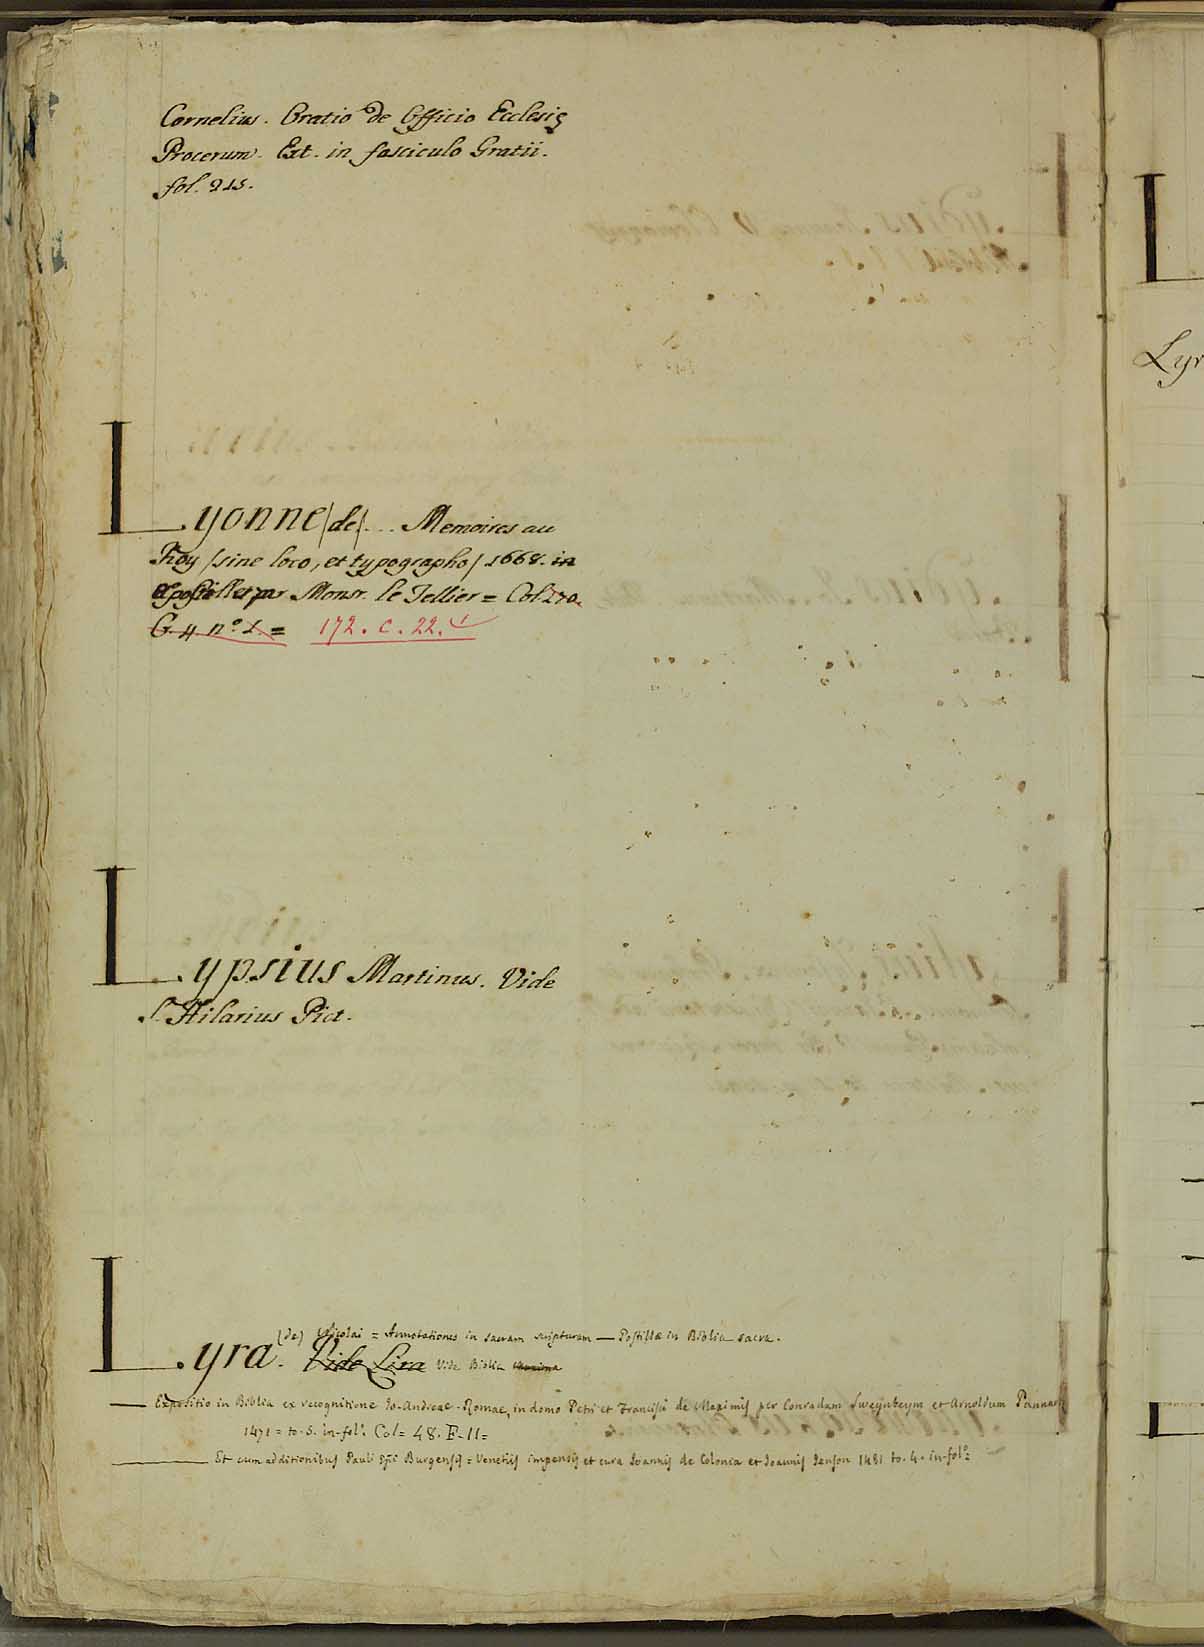 Cornelius. Oratio de Officio Ecclesię
Procerum. Ext. in fasciculo Gratii.
fol. 215.
Lyonne (de) ... Memoires au
Roy (sine loco, et typographo) 1668. in
par Monsr. le Tellier = Col 270.
G. 4 nº 1. = 172. C. 22. 1
Lypsius Martinus. Vide
S. Hilarius Pict.
(de) Nicolai = Annotationes in sacram scripturam — Postillæ in Biblia sacra.
Lyra. Vide Lira Vide Biblia
— Expositio in Biblia ex recognitione Jo-Andreae - Romae, in domo Petri et Francisci de Maximis per Conradum Sweynheym et Arnoldum Pannartz
1471 = to. 5. in-fol.º Col = 48. F. 11 =
— Et cum additionibus Pauli Epi Burgensis = Venetiis impensis et cura Joannis de Colonia et Joannis Jenson 1481 to. 4. in-folº =
L
Lyr
L